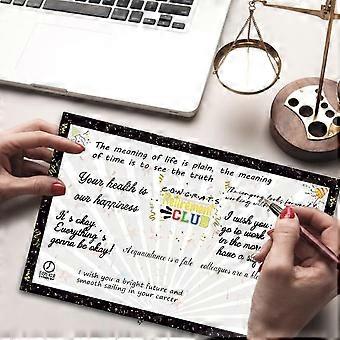 The meaning of life is plain, the meaning
of time is to see the truth
Your health is
our happiness
CONGRATS
Retirement
CLUB
The company
working
It's okay.
Everything's
gonna be okay!
I wish you
go to work
in the mor
have a s
Acquaintance is a fate
colleagues are a
I wish you a bright future and
smooth sailing in your career